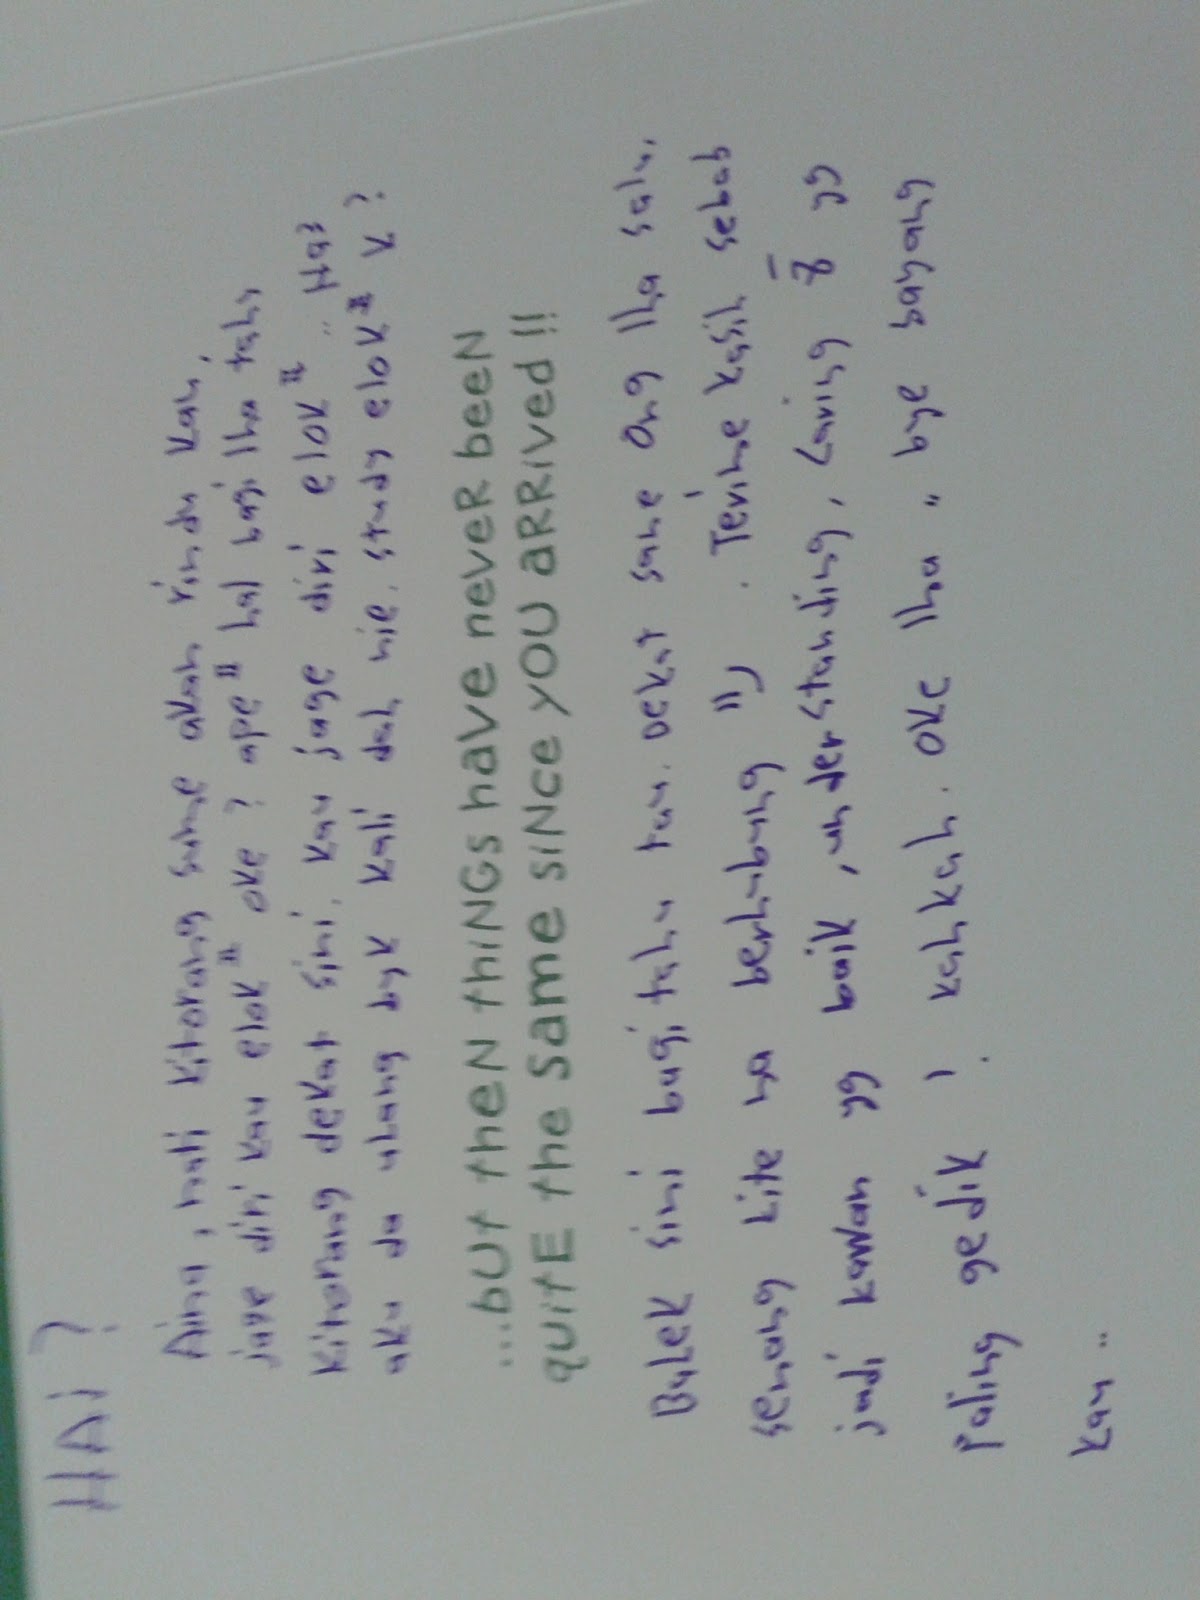 HAI ?
Aina, nati kitorang sume akan rindu kau,
jage diri kau elok" oke ? ape" hal bagi lha tahu
kitorang dekat sini. kau jage diri elok" .. Ha?
aku da ulang byk kali dah nie. study elok" k ?
...bUt theN thiNGs have neveR beeN
quitE the same siNce yOU aRRived !!
Balek sini bagi tahu tau. Dekat sane Ong lha salu,
senang kite na berhubung "). Terime kasih sebab
jadi kawan yg baik, understanding, caring & yg
paling gedik ! kahkah. Oke lha " bye sayang
kau ..